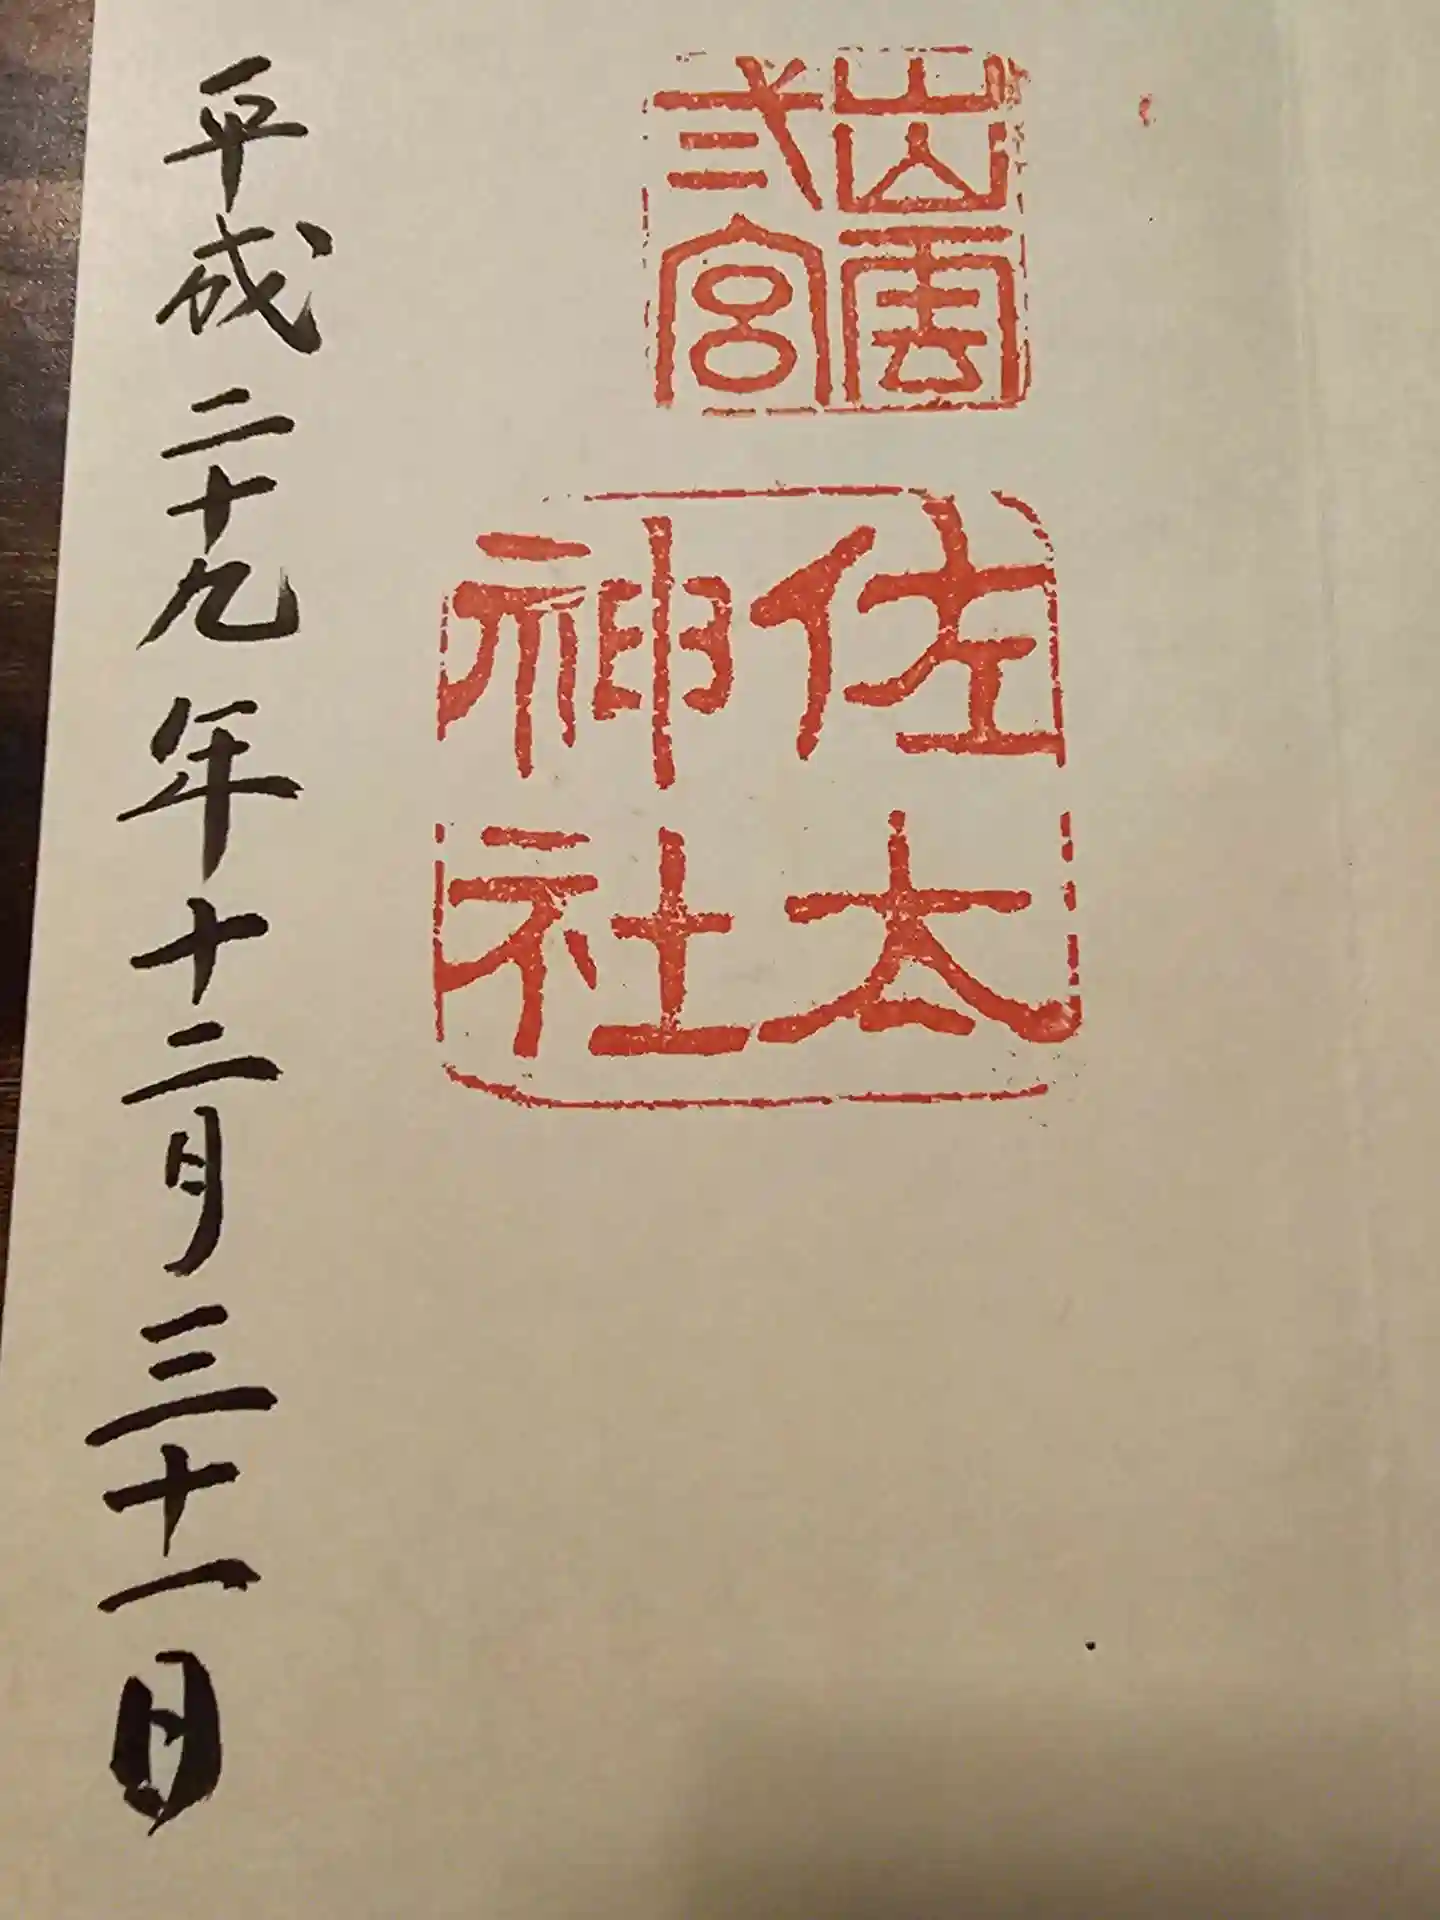 出雲
弍宮
佐太
神社
平成二十九年十二月三十一日